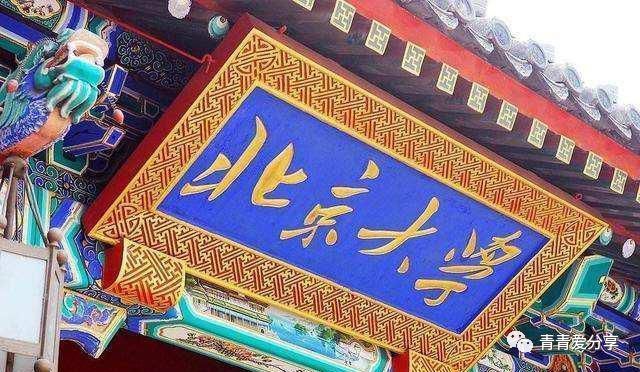 北京大学
青青爱分享